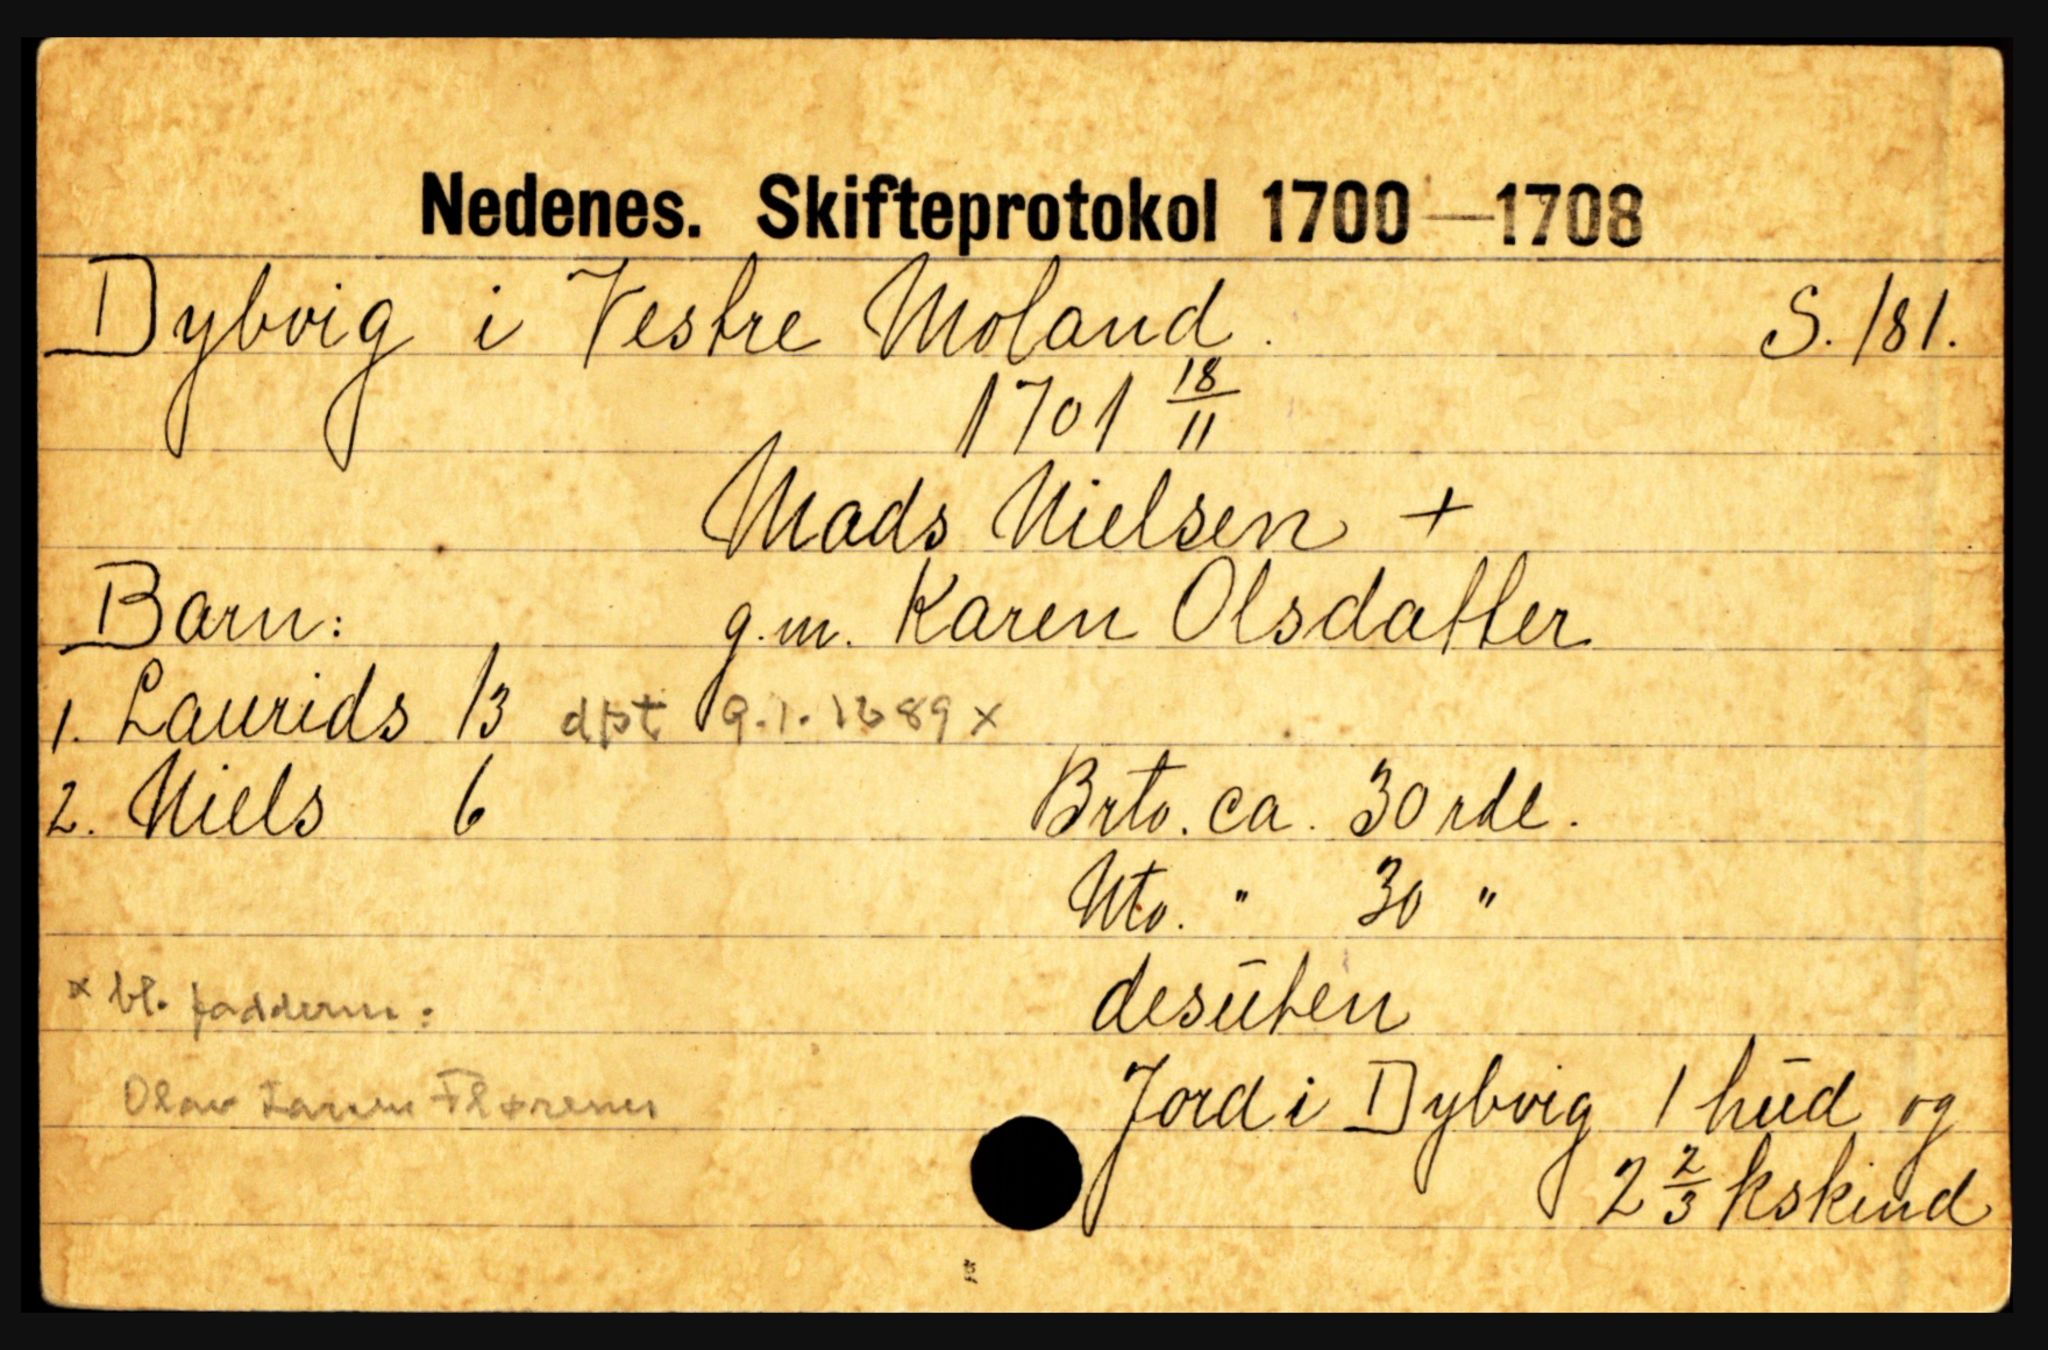 Nedenes. Skifteprotokol 1700—1708
Dybvig i Vestre Moland. S. 181.
1701 18/11
Mads Nielsen +
Barn: g.m. Karen Olsdatter
1. Laurids 13 dpt 9.1.1689 x
2. Niels 6 Brto. ca. 30 rdl.
Nto. " 30 "
x bl. fadderne: desūten
Jord i Dybvig 1 hūd og
Olav Larsen
2 2/3 kskind